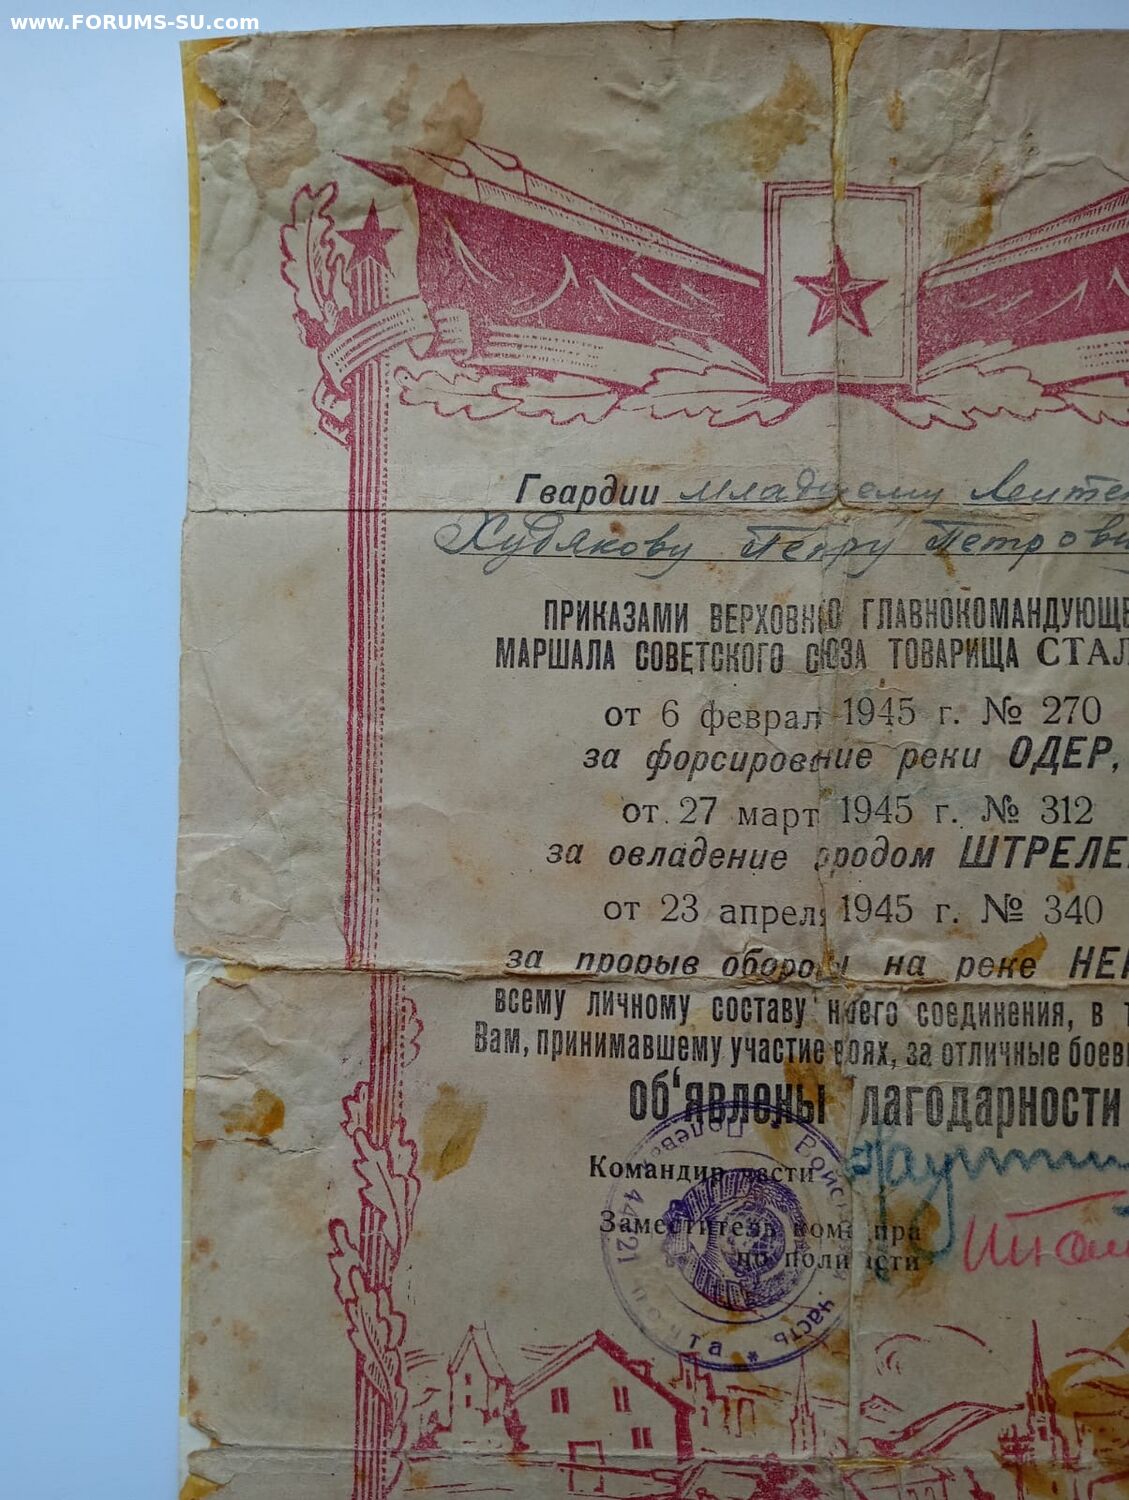 www.FORUMS-SU.com
Гвардии младшему Лейте
Худякову Петру Петрови
ПРИКАЗАМИ ВЕРХОВН О ГЛАВНОКОМАНДУЮЩЕ
МАРШАЛА СОВЕТСКОГО СОЮЗА ТОВАРИЩА СТАЛ
от 6 феврал 1945 г. № 270
за форсирование реки ОДЕР,
от 27 март 1945 г. № 312
за овладение городом ШТРЕЛЕ
от 23 апреля 1945 г. № 340
за прорыв оборо ы на реке НЕ
всему личному составу н его соединения, в т
Вам, принимавшему участие в оях, за отличные боев
об‘явлены лагодарности
Командир части
Заместитель кома ира
по полит сти
Войсковая часть * Полевая почта 44421